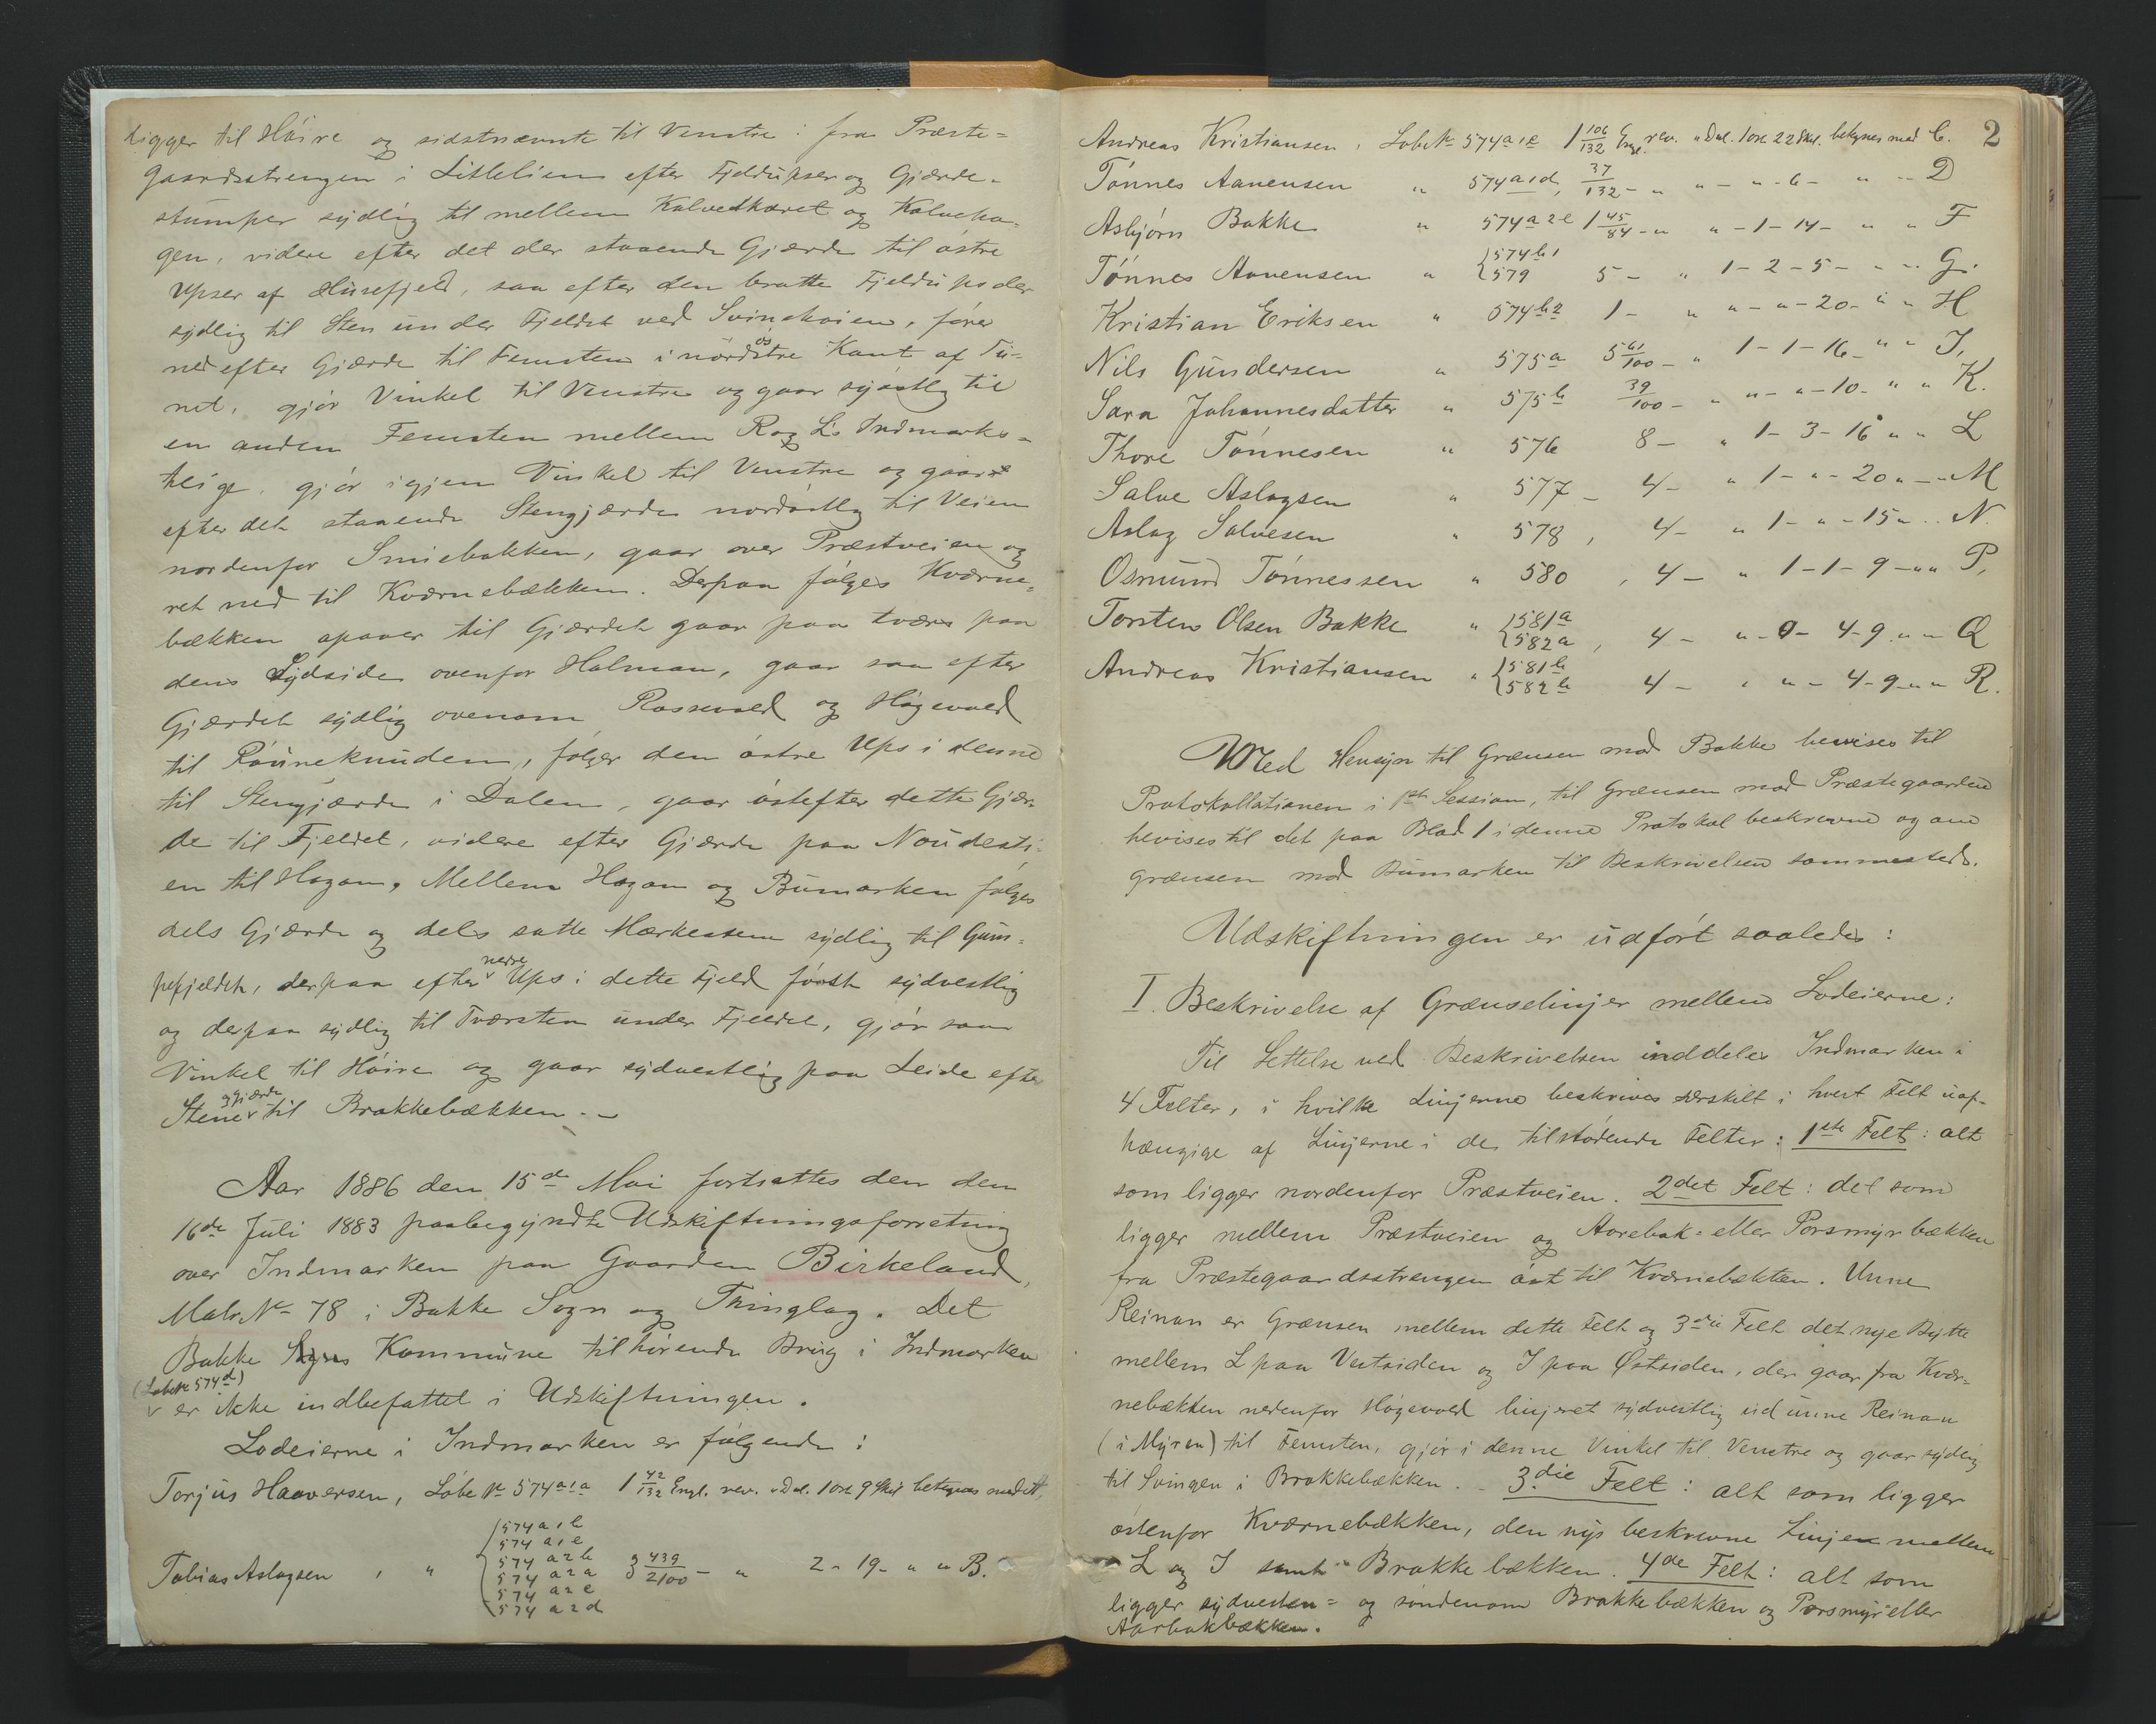 ligger til Høire og sidstnævnte til Venstre: fra Præste-
gaardsstrengen i Litleliens efter Fjeldupser og Gjærde-
stumper sydlig til mellem Kalvedkæret og Kalveha-
gen, videre efter det der staaende Gjærde til østre
Upser af Husefjeld, saa efter den bratte Fjeldups der
sydlig til Sten under Fjeldet ved Svinehøien, fører
ned efter Gjærde til Femsten i nordøstre Kant af Tu-
net, gjør Vinkel til Venstre og gaar sydøstlig til
en anden Femsten mellem R og L's Indmarks-
teige, gjør igjen Vinkel til Venstre og gaar
efter det staaende Stengjærde nordøstlig til Veien
nordenfor Smiebakken, gaar over Præstveien og
ret ned til Kværnebækken. Derpaa følges Kværne-
bækken opover til Gjærdet gaar paa tværs paa
dens Sydside ovenfor Holman, gaar saa efter
Gjærdet sydlig ovenom Rossevold og Høgevold
til Røuneknuden, følger den østre Ups i denne
til Stengjærde i Dalen, gaar østefter dette Gjær-
de til Fjeldet, videre efter Gjærde paa Noudesti-
en til Hagan. Mellem Hagan og Bumarken følges
dels Gjærde og dels satte Mærkestene sydlig til Gum-
pefjeldet, derpaa efter nedre Ups i dette Fjeld først sydvestlig
og derpaa sydlig til Tværsten under Fjeldet, gjør saa
Vinkel til Høire og gaar sydvestlig paa Leide efter
Stene og gjærde til Brakkebækken.-
Aar 1886 den 15de Mai fortsattes den den
16de Juli 1883 paabegyndte Udskiftningsforretning
over Indmarken paa Gaarden Birkeland,
Matr. No 78 i Bakke Sogn og Thinglag. Det
Bakke Sogns Kommune tilhørende Brug i Indmarken
(Løbe No 574d) er ikke indbefattet i Udskiftningen.
Lodeierne i Indmarken er følgende:
Torjus Haaversen, Løbe No 574a1a 1 42/132 Engl. rev. " Dal. 1 Ort 9 Skil betegnes med A.
Tobias Aslagsen , " {574a1b 574a1e 574a2b 574a2a 574a2c 574a2d 3 439/2100 - " 2 - 19 - " " B.
2
Andreas Kristiansen, Løbe No 574a1c 1 106/132 Engl. rev. " Dal. 1 Ort 22 Skil. betegnes med C.
Tønnes Aanensen " 574a1d, 37/132 - " " - " - 6 - " " D
Asbjørn Bakke " 574a2e 1 45/84 - " " - 1 - 14 - " " F
Tønnes Aanensen " {574b1 579 5 - " 1 - 2 - 5 - " " G.
Kristian Eriksen " 574b2 1 - " " - " - 20 - " " H
Nils Gundersen " 575a 5 61/100 - " 1 - 1 - 16 - " " I,
Sara Johannesdatter " 575b 39/100 - " " - " - 10 - " " K.
Thore Tønnesen " 576 8 - " 1 - 3 - 16 " " L
Salve Aslagsen " 577 - 4 - " 1 - " - 20 " - " M
Aslag Salvesen " 578, 4 - " 1 - " - 15 " .. N.
Osmund Tønnessen " 580, 4 - " 1 - 1 - 9 - " " P,
Torsten Olsen Bakke " {581a 582a, 4 - " - 0 - 4 - 9 " " Q
Andreas Kristiansen " {581b 582b 4 - " " - 4 - 9 - " " R.
Med Hensyn til Grænsen mod Bakke henvises til
Protokollationen i 1ste Session, til Grænsen mod Præstegaarden
henvises til det paa Blad 1 i denne Protokol beskrevne og om
grænsen mod Bumarken til Beskrivelsen sammesteds.
Udskiftningen er udført saaledes:
I. Beskrivelse af Grænselinjer mellem Lodeierne:
Til Lettelse ved Beskrivelsen inddeles Indmarken i
4 Felter, i hvilke Linjerne beskrives særskilt i hvert Felt uaf-
hængige af Linjerne i de tilstødende Felter: 1ste Felt: alt
som ligger nordenfor Præstveien. 2det Felt: det som
ligger mellem Præstveien og Aorebak- eller Porsmyrbækken
fra Præstegaardsstrengen øst til Kværnebækken. Unne
Reinan er Grænsen mellem dette Felt og 3die Felt det nye Bytte
mellem L paa Vestsiden og I paa Østsiden, der gaar fra Kvær-
nebækken nedenfor Høgevold linjeret sydvestlig ud unne Reinan
(i Myren) til Femsten, gjør i denne Vinkel til Venstre og gaar sydlig
til Svingen i Brakkebækken. - 3die Felt: alt som ligger
østenfor Kværnebækken, den nys beskrevne Linje mellem
L og I samt Brakkebækken. 4de Felt: alt som
ligger sydvesten- og søndenom Brakkebækken og Porsmyr- eller
Aarbakbækken.